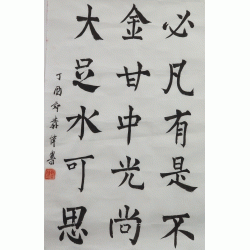 必凡有是不
金甘中光尚
大足水可思
丁酉